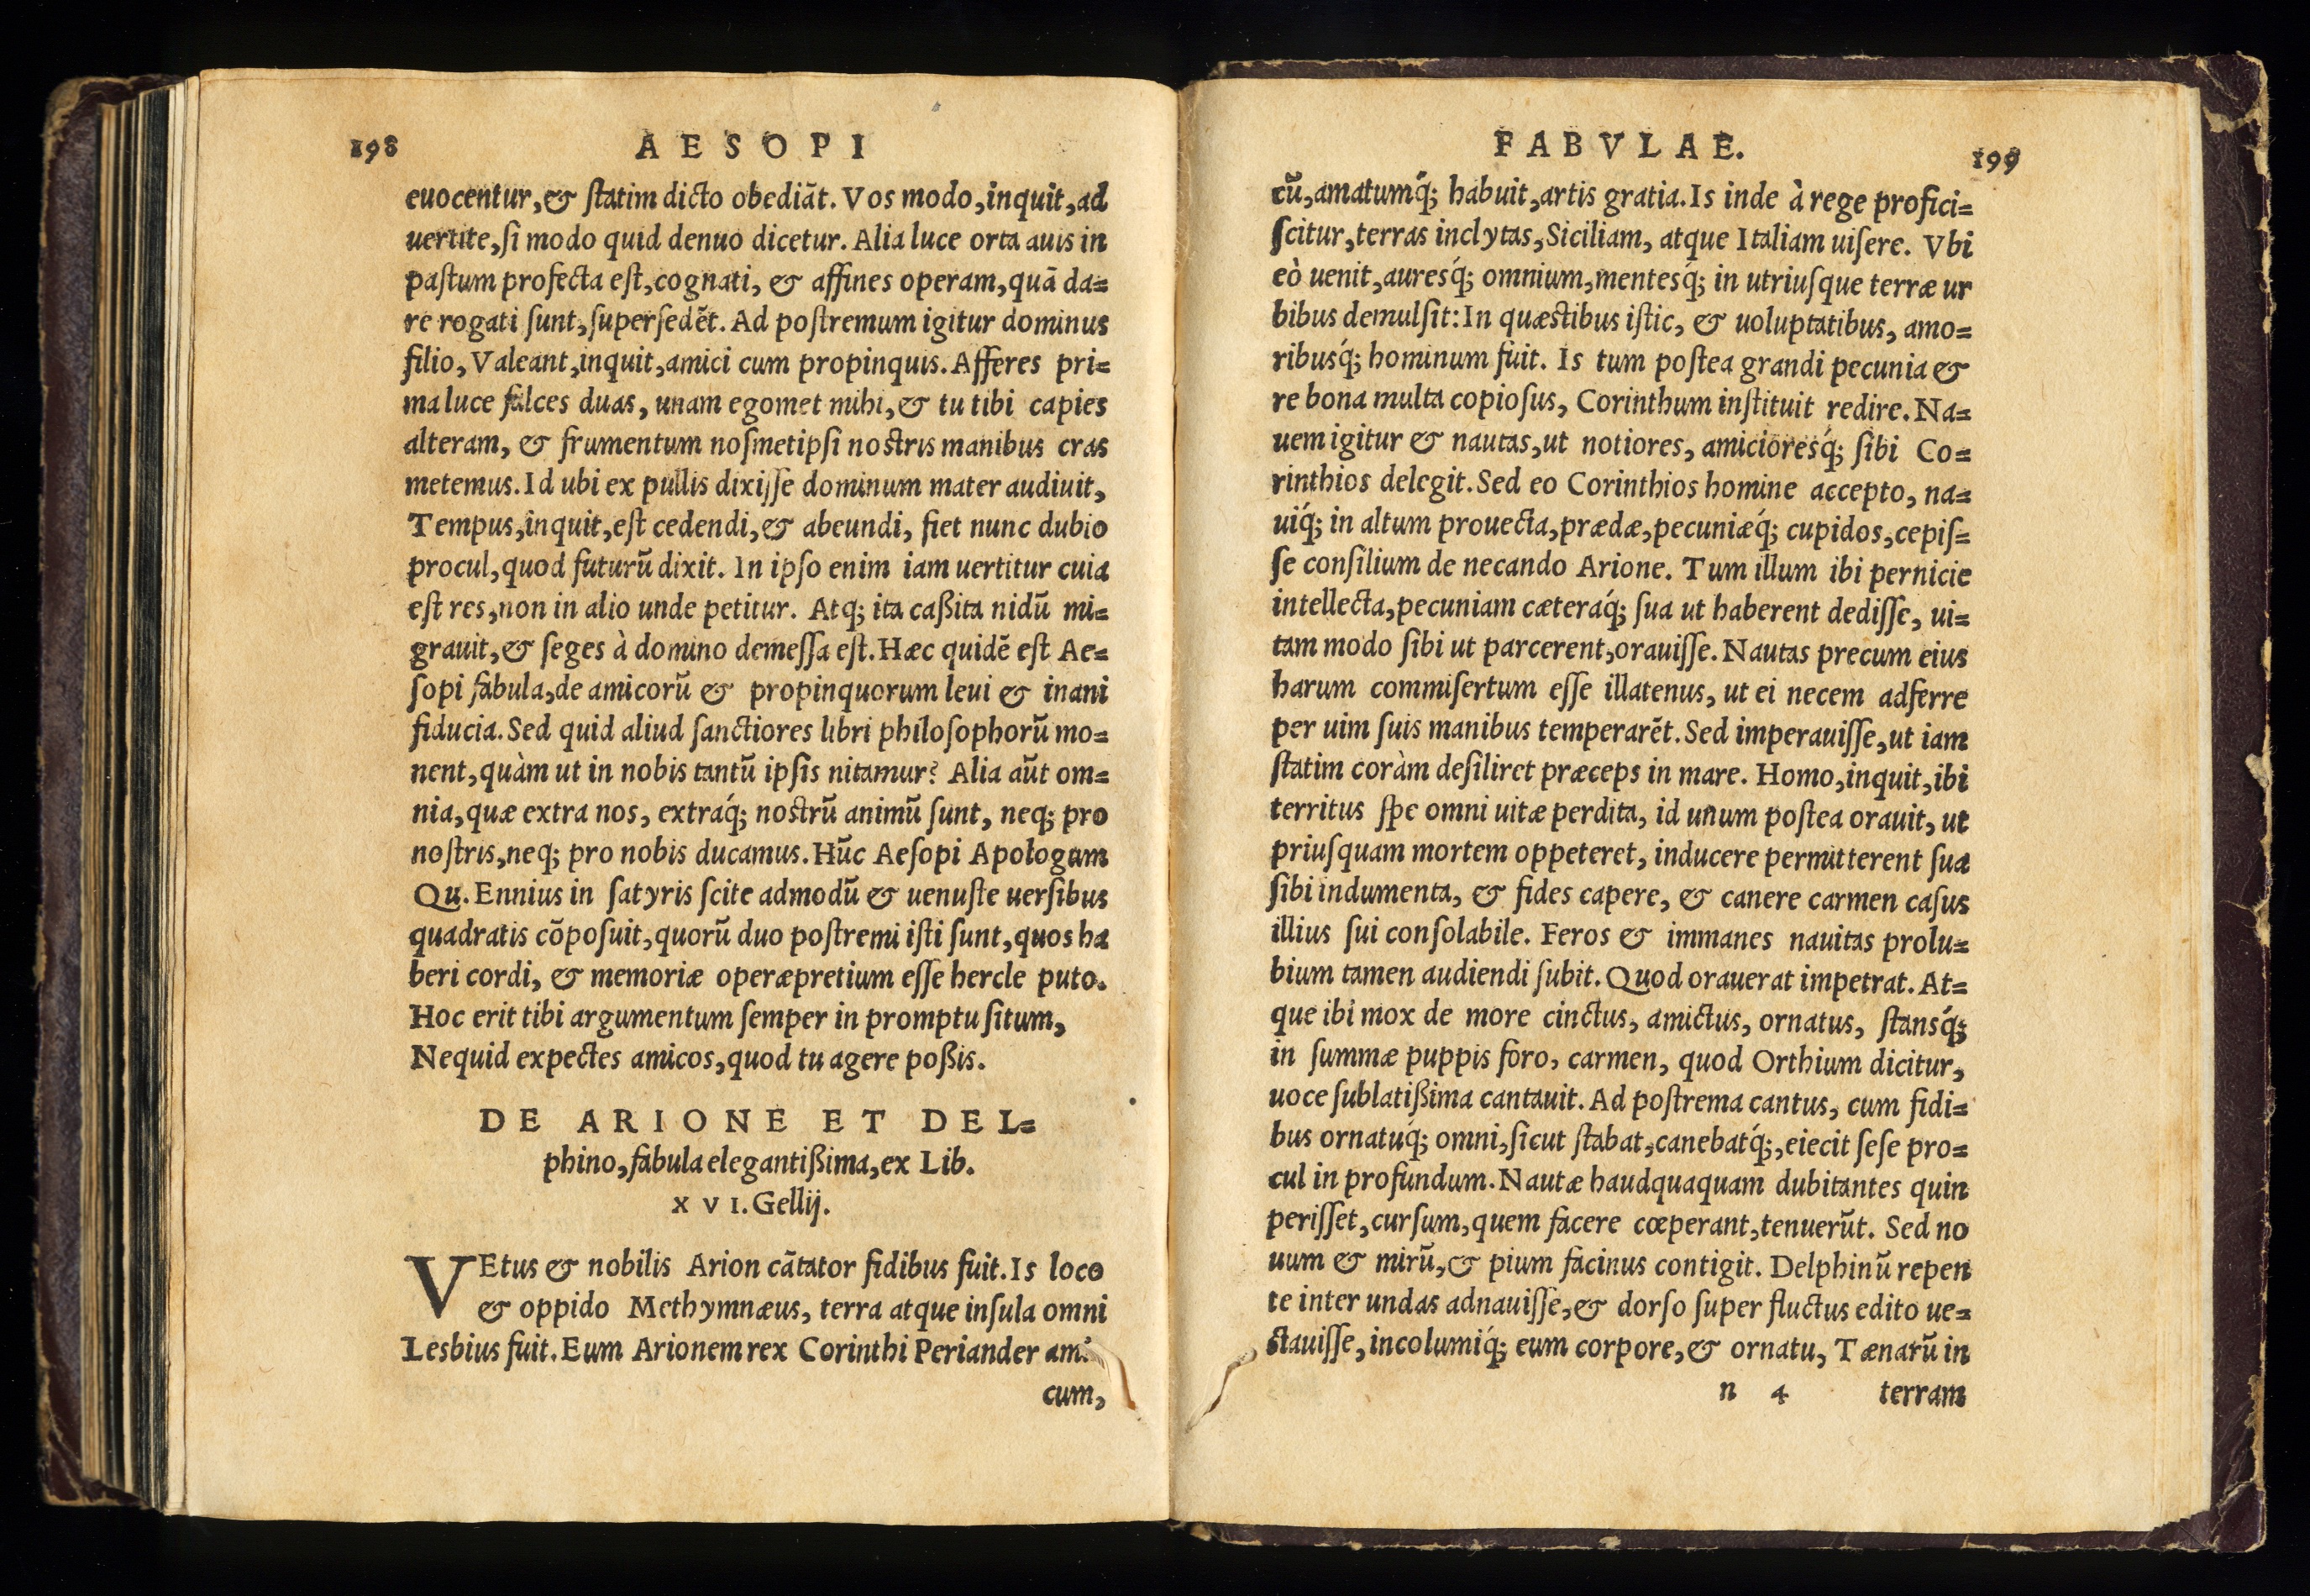 198 AESOPI
euocentur,& ſtatim dicto obediāt. Vos modo,inquit,ad
uertite,ſi modo quid denuo dicetur. Alia luce orta auis in
paſtum profecta eſt,cognati, & affines operam,quā da=
re rogati ſunt,ſuperſedēt. Ad poſtremum igitur dominus
filio, Valeant,inquit,amici cum propinquis. Afferes pri=
ma luce falces duas, unam egomet mihi,& tu tibi capies
alteram, & frumentum noſmetipſi noſtris manibus cras
metemus. Id ubi ex pullis dixiſſe dominum mater audiuit,
Tempus,inquit,eſt cedendi,& abeundi, fiet nunc dubio
procul,quod futurū dixit. In ipſo enim iam uertitur cuia
eſt res,non in alio unde petitur. Atq; ita caßita nidū mi=
grauit,& ſeges à domino demeſſa eſt. Hæc quidē eſt Ae=
ſopi fabula,de amicorū & propinquorum leui & inani
fiducia. Sed quid aliud ſanctiores libri philoſophorū mo=
nent,quàm ut in nobis tantū ipſis nitamur? Alia aūt om=
nia,quæ extra nos, extraq́; noſtrū animū ſunt, neq; pro
noſtris,neq; pro nobis ducamus. Hūc Aeſopi Apologum
Qu. Ennius in ſatyris ſcite admodū & uenuſte uerſibus
quadratis cōpoſuit,quorū duo poſtremi iſti ſunt,quos ha
beri cordi, & memoriæ operæpretium eſſe hercle puto.
Hoc erit tibi argumentum ſemper in promptu ſitum,
Nequid expectes amicos,quod tu agere poßis.
DE ARIONE ET DEL=
phino,fabula elegantißima,ex Lib.
XVI. Gellij.
VEtus & nobilis Arion cātator fidibus fuit. Is loco
& oppido Methymnæus, terra atque inſula omni
Lesbius fuit. Eum Arionem rex Corinthi Periander ami
cum,
FABVLAE. 199
cū,amatumq́; habuit,artis gratia. Is inde à rege profici=
ſcitur,terras inclytas,Siciliam, atque Italiam uiſere. Vbi
eò uenit,auresq́; omnium,mentesq́; in utriuſque terræ ur
bibus demulſit: In quæſtibus iſtic, & uoluptatibus, amo=
ribusq́; hominum fuit. Is tum poſtea grandi pecunia &
re bona multa copioſus, Corinthum inſtituit redire. Na=
uem igitur & nautas,ut notiores, amicioresq́; ſibi Co=
rinthios delegit. Sed eo Corinthios homine accepto, na=
uiq́; in altum prouecta,prædæ,pecuniæq́; cupidos,cepiſ=
ſe conſilium de necando Arione. Tum illum ibi pernicie
intellecta,pecuniam cæteraq́; ſua ut haberent dediſſe, ui=
tam modo ſibi ut parcerent,orauiſſe. Nautas precum eius
harum commiſertum eſſe illatenus, ut ei necem adferre
per uim ſuis manibus temperarēt. Sed imperauiſſe,ut iam
ſtatim coràm deſiliret præceps in mare. Homo,inquit,ibi
territus ſpe omni uitæ perdita, id unum poſtea orauit, ut
priuſquam mortem oppeteret, inducere permitterent ſua
ſibi indumenta, & fides capere, & canere carmen caſus
illius ſui conſolabile. Feros & immanes nauitas prolu=
bium tamen audiendi ſubit. Quod orauerat impetrat. At=
que ibi mox de more cinctus, amictus, ornatus, ſtansq́;
in ſummæ puppis foro, carmen, quod Orthium dicitur,
uoce ſublatißima cantauit. Ad poſtrema cantus, cum fidi=
bus ornatuq́; omni,ſicut ſtabat,canebatq́;,eiecit ſeſe pro=
cul in profundum. Nautæ haudquaquam dubitantes quin
periſſet,curſum,quem facere cœperant,tenuerūt. Sed no
uum & mirū,& pium facinus contigit. Delphinū repen
te inter undas adnauiſſe,& dorſo ſuper fluctus edito ue=
ctauiſſe,incolumiq́; eum corpore,& ornatu, Tænarū in
n 4 terram